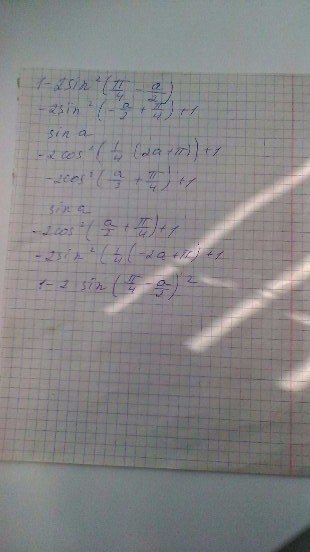 1-2sin²(π/4 - a/2)
-2sin²(-a/2 + π/4)+1
sin a
-2cos²(1/4 (2a+π))+1
-2cos²(a/2 + π/4)+1
sin a
-2cos²(a/2 + π/4)+1
-2sin²(1/4(-2a+π)+1
1-2 sin(π/4 - a/2)²